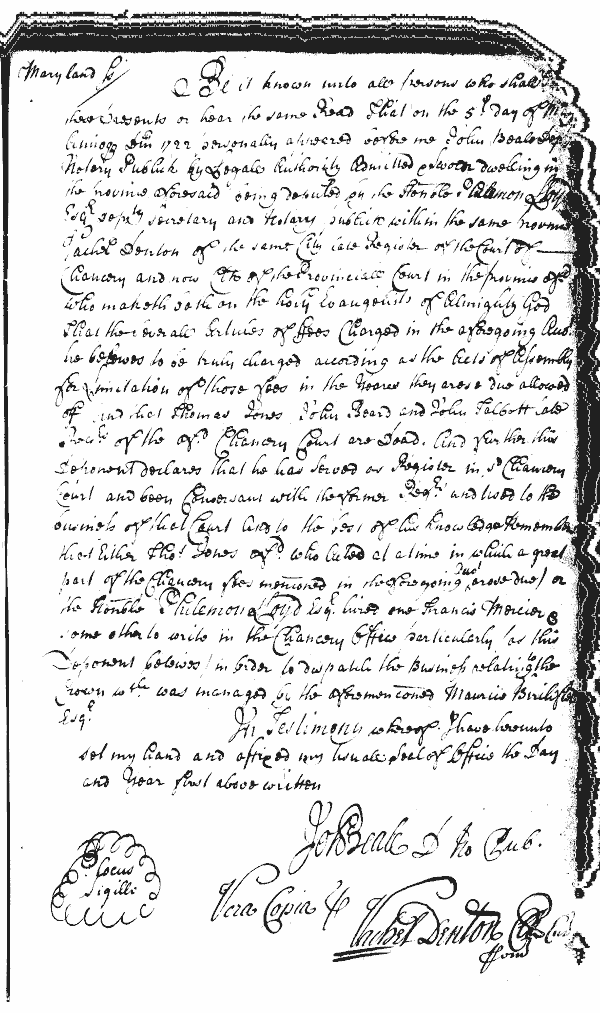 Maryland ss
Be it known unto all persons who shall see
these presents or hear the same Read that on the 5th day of
Annoqe Dm 1722 personally appeared before me John Beale Dep
Notary Publick by Legale Authority admitted & sworn dwelling in
the Province aforesaid being deputed by the Honble Philemon Lloyd
Esqr Depty Secretary and Notary publick within the same Province
Vachel Denton of the same City late Register of the Court of
Chancery and now Clk of the Provinciale Court in the province afd
who maketh oath on the holy Evangelists of Almighty God
that the severale Articles of fees Charged in the aforegoing
he beleives to be truly charged according as the Acts of Assembly
for Limitation of those fees in the Yeares they arose due allowed
of and that Thomas Jones John Beard and John Talbott late
Regrs of the afd Chancery Court are Dead. And further this
Deponent declares that he has served as Register in sd Chancery
Court and been Conversant with the former Regrs and used to the
business of that Court and to the best of his knowledge Remembers
that Either Thos Jones afd who acted at a time in which a great
part of the Chancery fees mentioned in the foregoing arose due or
the Honble Philemon Lloyd Esqr hired one Francis Mercier &
some other to write in the Chancery Office particularly as this
Deponent beleives in order to dispatch the Business relating the
Crown wch was managed by the aforementioned Maurice Birchfield
Esqr
In Testimony whereof I have hereunto
set my hand and affixed my usuale Seal of Office the Day
and Year first above written
Jo Beale D No Pub.
Locus
Sigilli
Vera Copia
Vachel Denton